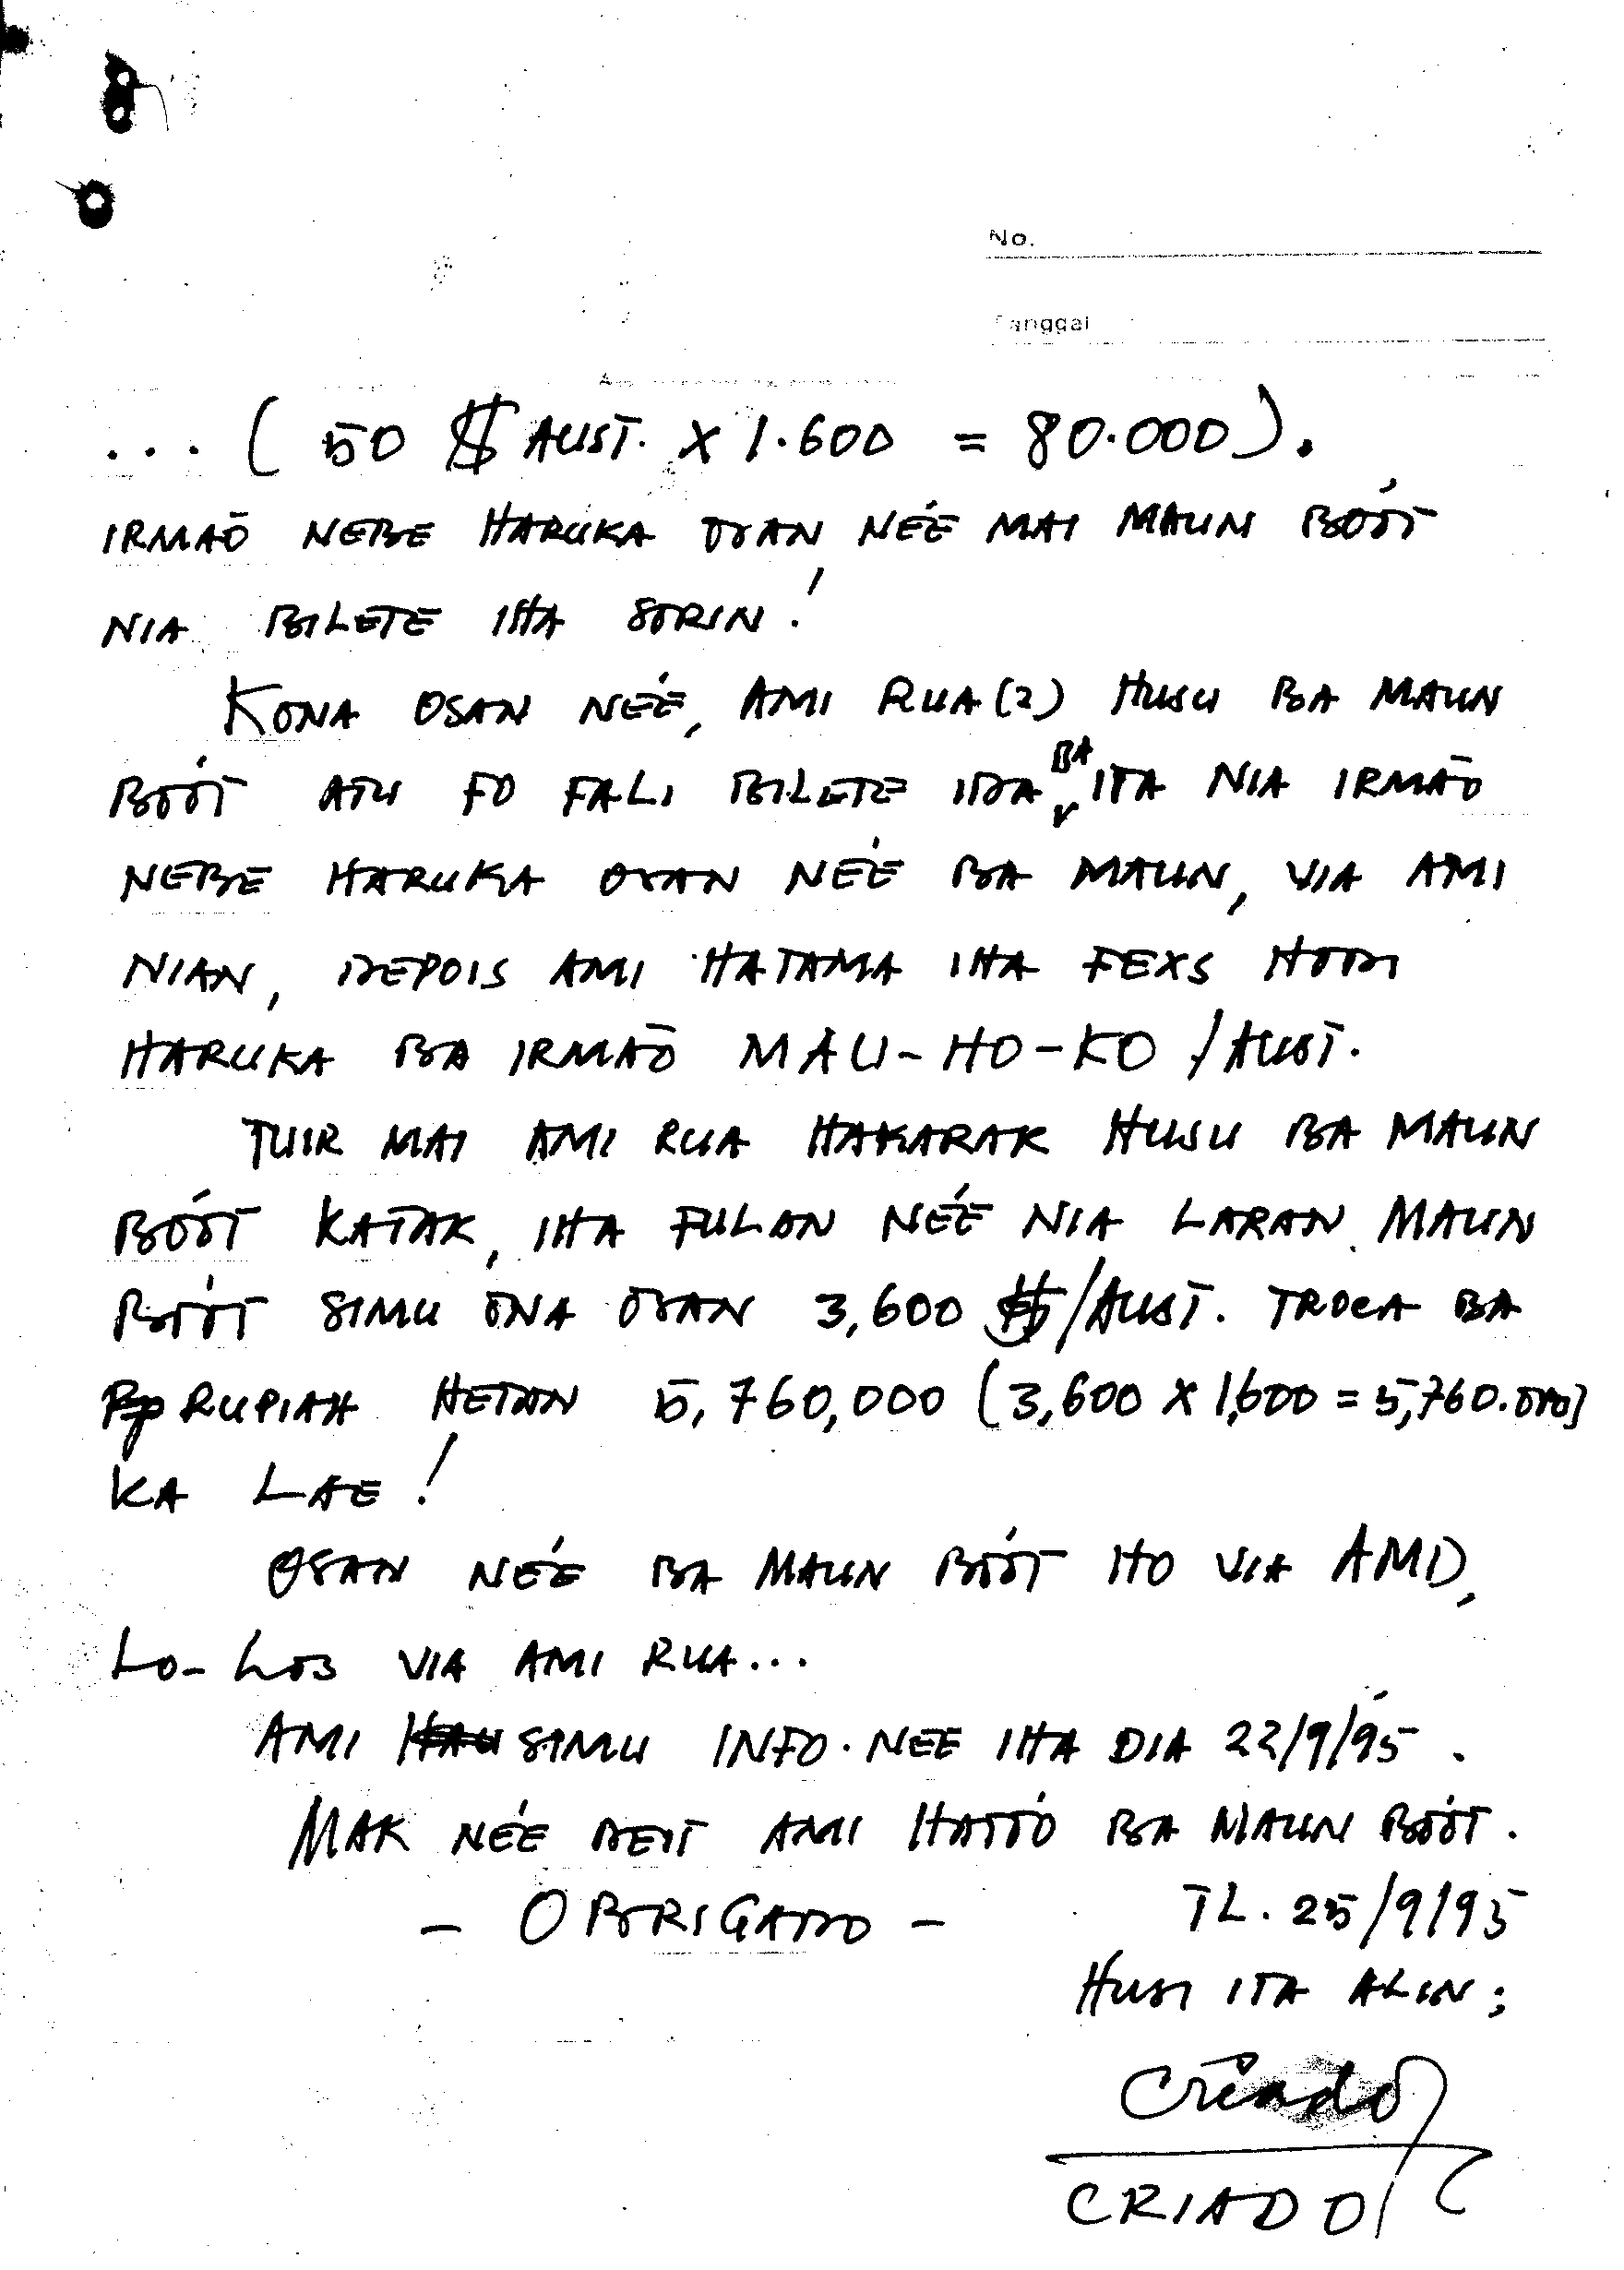 No.
Tanggal
... ( 50 $ AUST. X 1.600 = 80.000).
IRMAÕ NEBE HARUKA OSAN NÉE MAI MAUN BOÓT
NIA BILETE IHA SORIN!
KONA OSAN NEÉ, AMI RUA (2) HUSU BA MAUN
BOÓT ATU FO FALI BILETE IDA BA ITA NIA IRMAÕ
NEBE HARUKA OSAN NEÉ BA MAUN, VIA AMI
NIAN, DEPOIS AMI HATAMA IHA FEXS HODI
HARUKA BA IRMAÕ MAU-HO-KO / AUST.
TUIR MAI AMI RUA HAKARAK HUSU BA MAUN
BOÓT KATAK, IHA FULAN NEÉ NIA LARAN. MAUN
BOÓT SIMU ONA OSAN 3,600 $/AUST. TROCA BA
Rp RUPIAH HETAN 5,760,000 (3,600 X 1,600 = 5,760.000)
KA LAE!
OSAN NEÉ BA MAUN BOÓT HO VIA AMI,
LO-LOS VIA AMI RUA...
AMI SIMU INFO. NEE IHA DIA 22/9/95.
MAK NÉE DEIT AMI HATÓO BA MAUN BOÓT.
- OBRIGADO - TL. 25/9/95
HUSI ITA ALIN;
Criado
CRIADO